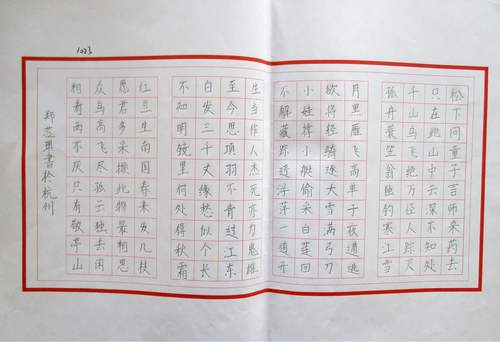 1023
松下问童子言师采药去
只在此山中云深不知处
千山鸟飞绝万径人踪灭
孤舟蓑笠翁独钓寒江雪
月黑雁飞高单于夜遁逃
欲将轻骑逐大雪满弓刀
小娃撑小艇偷采白莲回
不解藏踪迹浮萍一道开
生当作人杰死亦为鬼雄
至今思项羽不肯过江东
白发三千丈缘愁似个长
不知明镜里何处得秋霜
红豆生南国春来发几枝
愿君多采撷此物最相思
众鸟高飞尽孤云独去闲
相看两不厌只有敬亭山
郑書於杭州